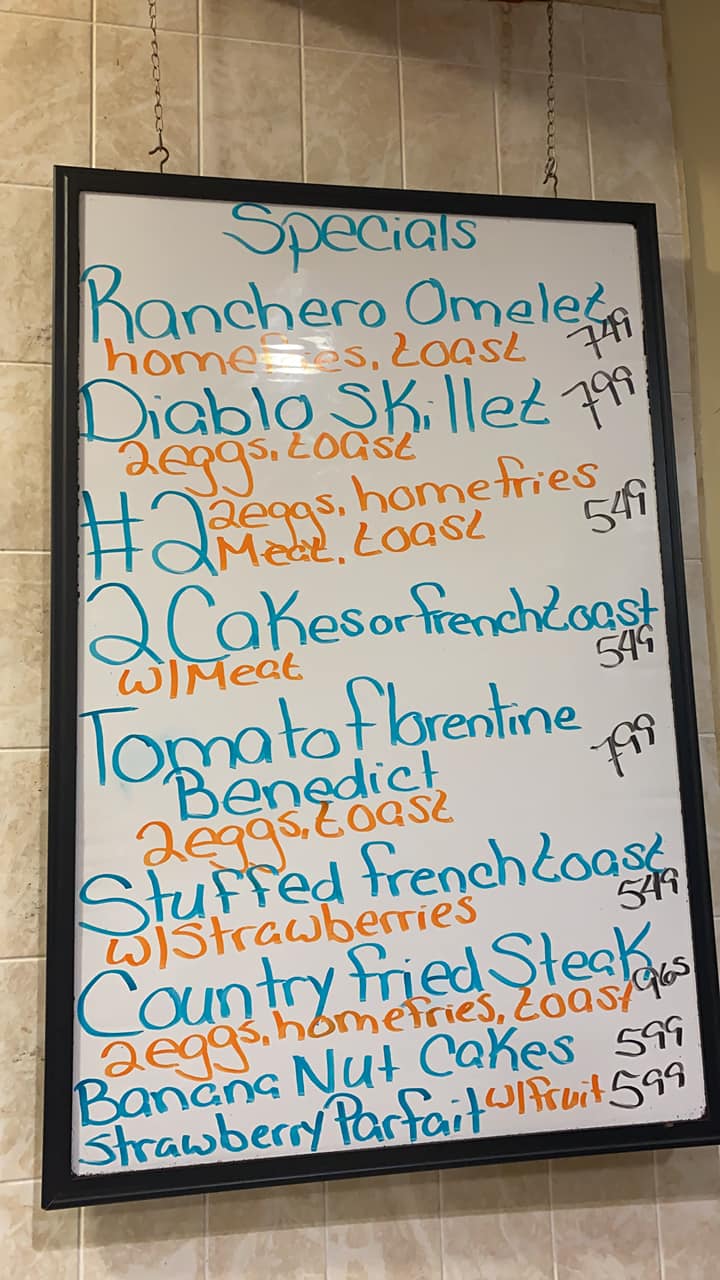 Specials
Ranchero Omelet 749
homefries, toast
Diablo Skillet 799
2eggs, toast
#2 2eggs, homefries 549
Meat, toast
2 Cakes or french toast 549
w/Meat
Tomato florentine 799
Benedict
2eggs, toast
Stuffed french toast 549
w/Strawberries
Country fried Steak 965
2eggs, homefries, toast
Banana Nut Cakes 599
Strawberry Parfait w/fruit 599